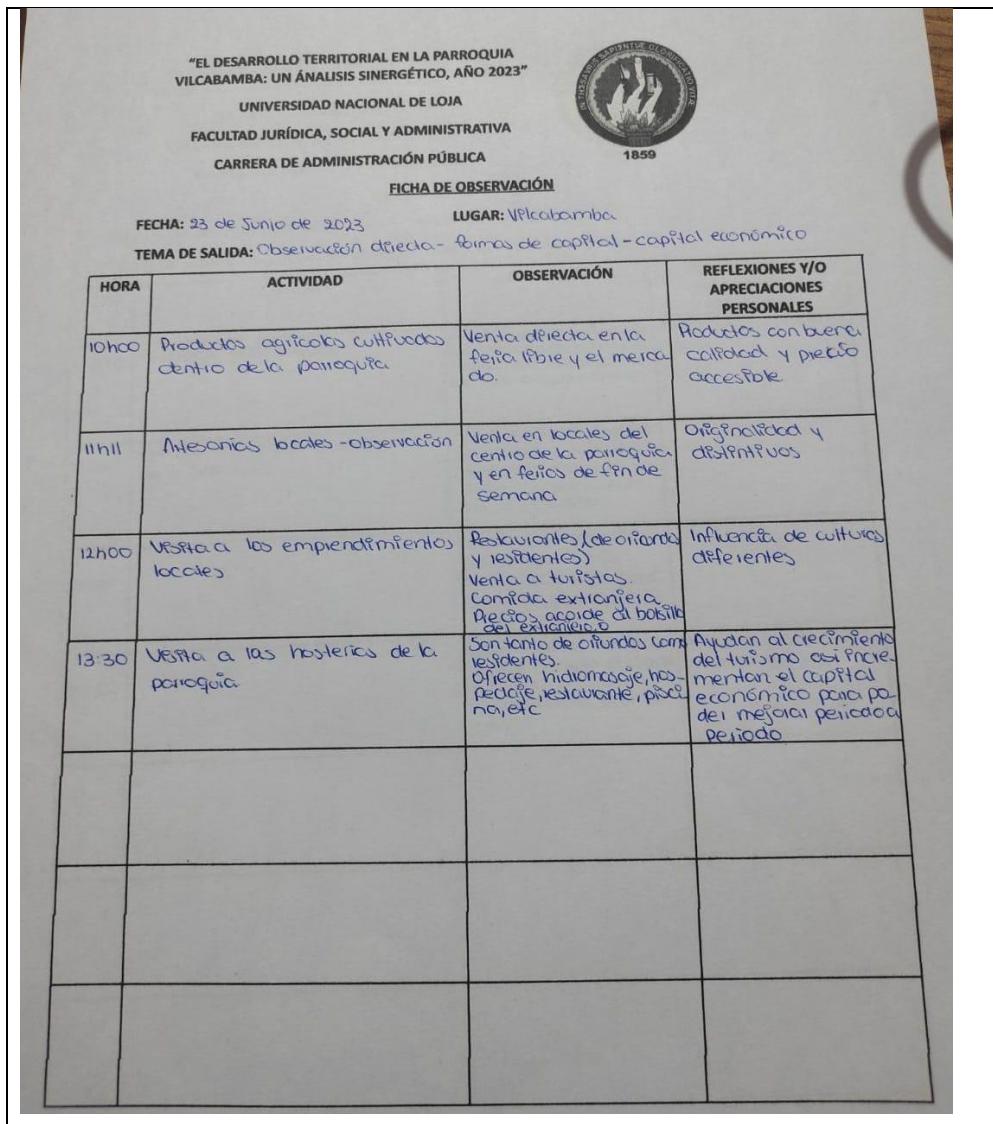 "EL DESARROLLO TERRITORIAL EN LA PARROQUIA
VILCABAMBA: UN ÁNALISIS SINERGÉTICO, AÑO 2023"
UNIVERSIDAD NACIONAL DE LOJA
FACULTAD JURÍDICA, SOCIAL Y ADMINISTRATIVA
CARRERA DE ADMINISTRACIÓN PÚBLICA
IN THESAURIS SAPIENTIAE GLORIFICATIO VITAE
1859
FICHA DE OBSERVACIÓN
FECHA: 23 de Junio de 2023
LUGAR: Vilcabamba
TEMA DE SALIDA: Observación directa - formas de capital - capital económico
HORA
ACTIVIDAD
OBSERVACIÓN
REFLEXIONES Y/O
APRECIACIONES
PERSONALES
10h00
Productos agrícolas cultivados
dentro de la parroquia
Venta directa en la
feria libre y el merca
do.
Productos con buena
calidad y precio
accesible
11h11
Artesanías locales - observación
Venta en locales del
centro de la parroquia
y en ferias de fin de
semana
Originalidad y
distintivos
12h00
Visita a los emprendimientos
locales
Restaurantes (de oriundos
y residentes)
Venta a turistas.
Comida extranjera
Precios acorde al bolsillo
del extranjero
Influencia de culturas
diferentes
13:30
Visita a las hosterías de la
parroquia
Son tanto de oriundos como
residentes.
Ofrecen hidromasaje, hos-
pedaje, restaurante, pisci
na, etc
Ayudan al crecimiento
del turismo asi incre-
mentan el capital
económico para po-
der mejorar periodo a
periodo